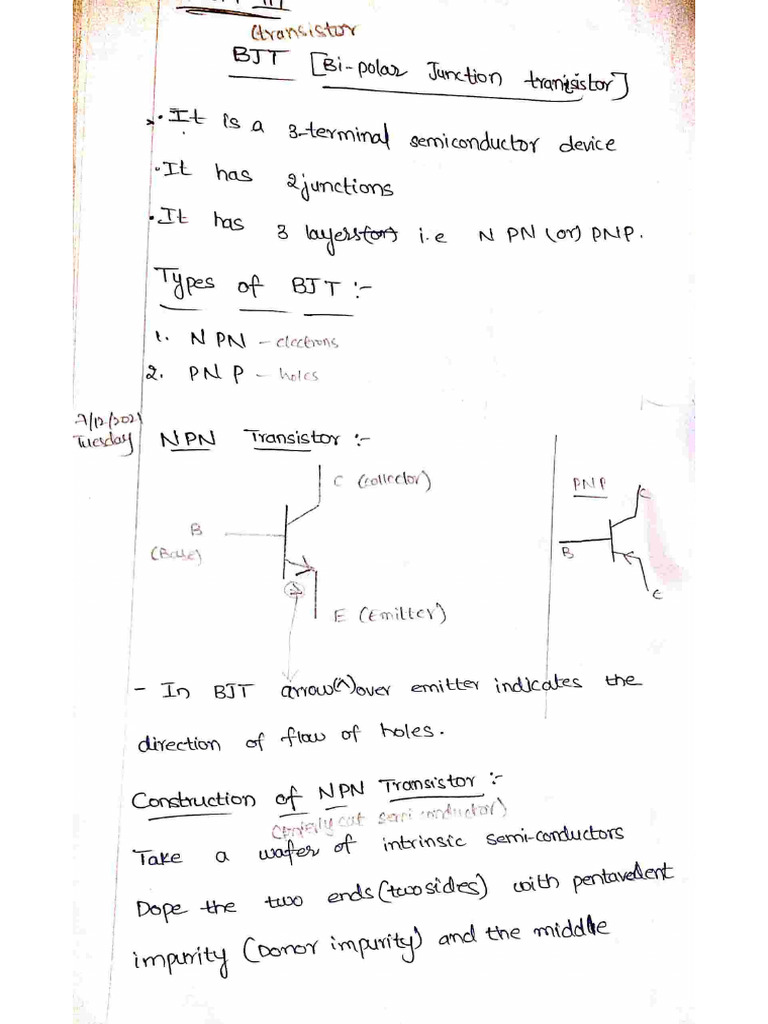 (transistor
BJT [Bi-polar Junction tranisistor]
• It is a 3-terminal semiconductor device
• It has 2 junctions
• It has 3 layers(or) i.e N PN (or) PNP.
Types of BJT :-
1. N PN - electrons
2. PN P - holes
7/12/2021
Tuesday
NPN Transistor :-
C (collector)
B
(Base)
E (Emitter)
PNP
C
B
E
- In BJT arrow(^) over emitter indicates the
direction of flow of holes.
Construction of NPN Transistor :-
cut semi conductor)
Take a wafer of intrinsic semi-conductors
Dope the two ends (two sides) with pentavelent
impurity (Donor impurity) and the middle